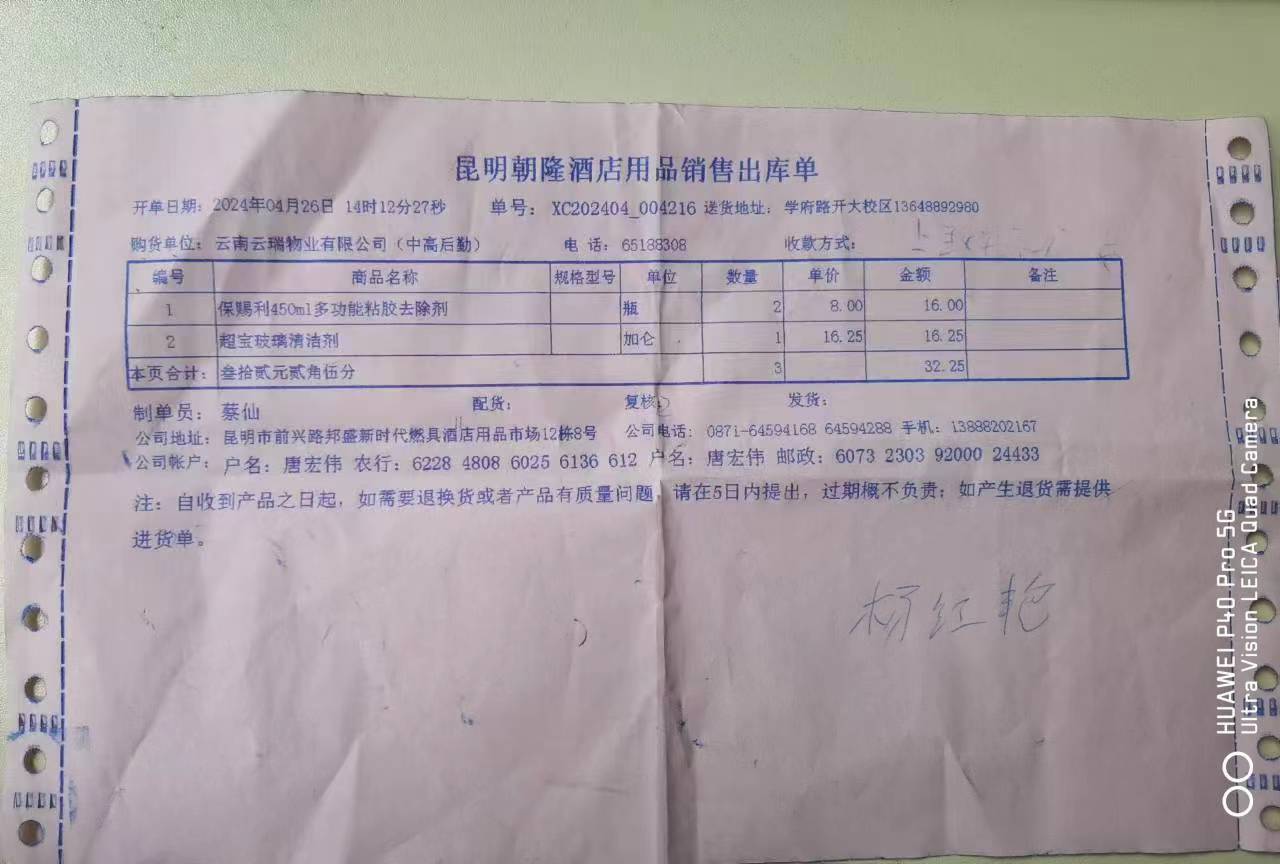 昆明朝隆酒店用品销售出库单
开单日期: 2024年04月26日 14时12分27秒 单号: XC202404_004216 送货地址: 学府路开大校区13648892980
购货单位: 云南云瑞物业有限公司（中高后勤） 电 话: 65188308 收款方式:
编号 商品名称 规格型号 单位 数量 单价 金额 备注
1 保赐利450ml多功能粘胶去除剂 瓶 2 8.00 16.00
2 超宝玻璃清洁剂 加仑 1 16.25 16.25
本页合计: 叁拾贰元贰角伍分 3 32.25
制单员: 蔡仙 配货: 复核: 发货:
公司地址: 昆明市前兴路邦盛新时代燃具酒店用品市场12栋8号 公司电话: 0871-64594168 64594288 手机: 13888202167
公司帐户: 户名: 唐宏伟 农行: 6228 4808 6025 6136 612 户名: 唐宏伟 邮政: 6073 2303 92000 24433
注: 自收到产品之日起, 如需要退换货或者产品有质量问题, 请在5日内提出, 过期概不负责; 如产生退货需提供
进货单。
杨红艳
HUAWEI P40 Pro 5G
Ultra Vision LEICA Quad Camera